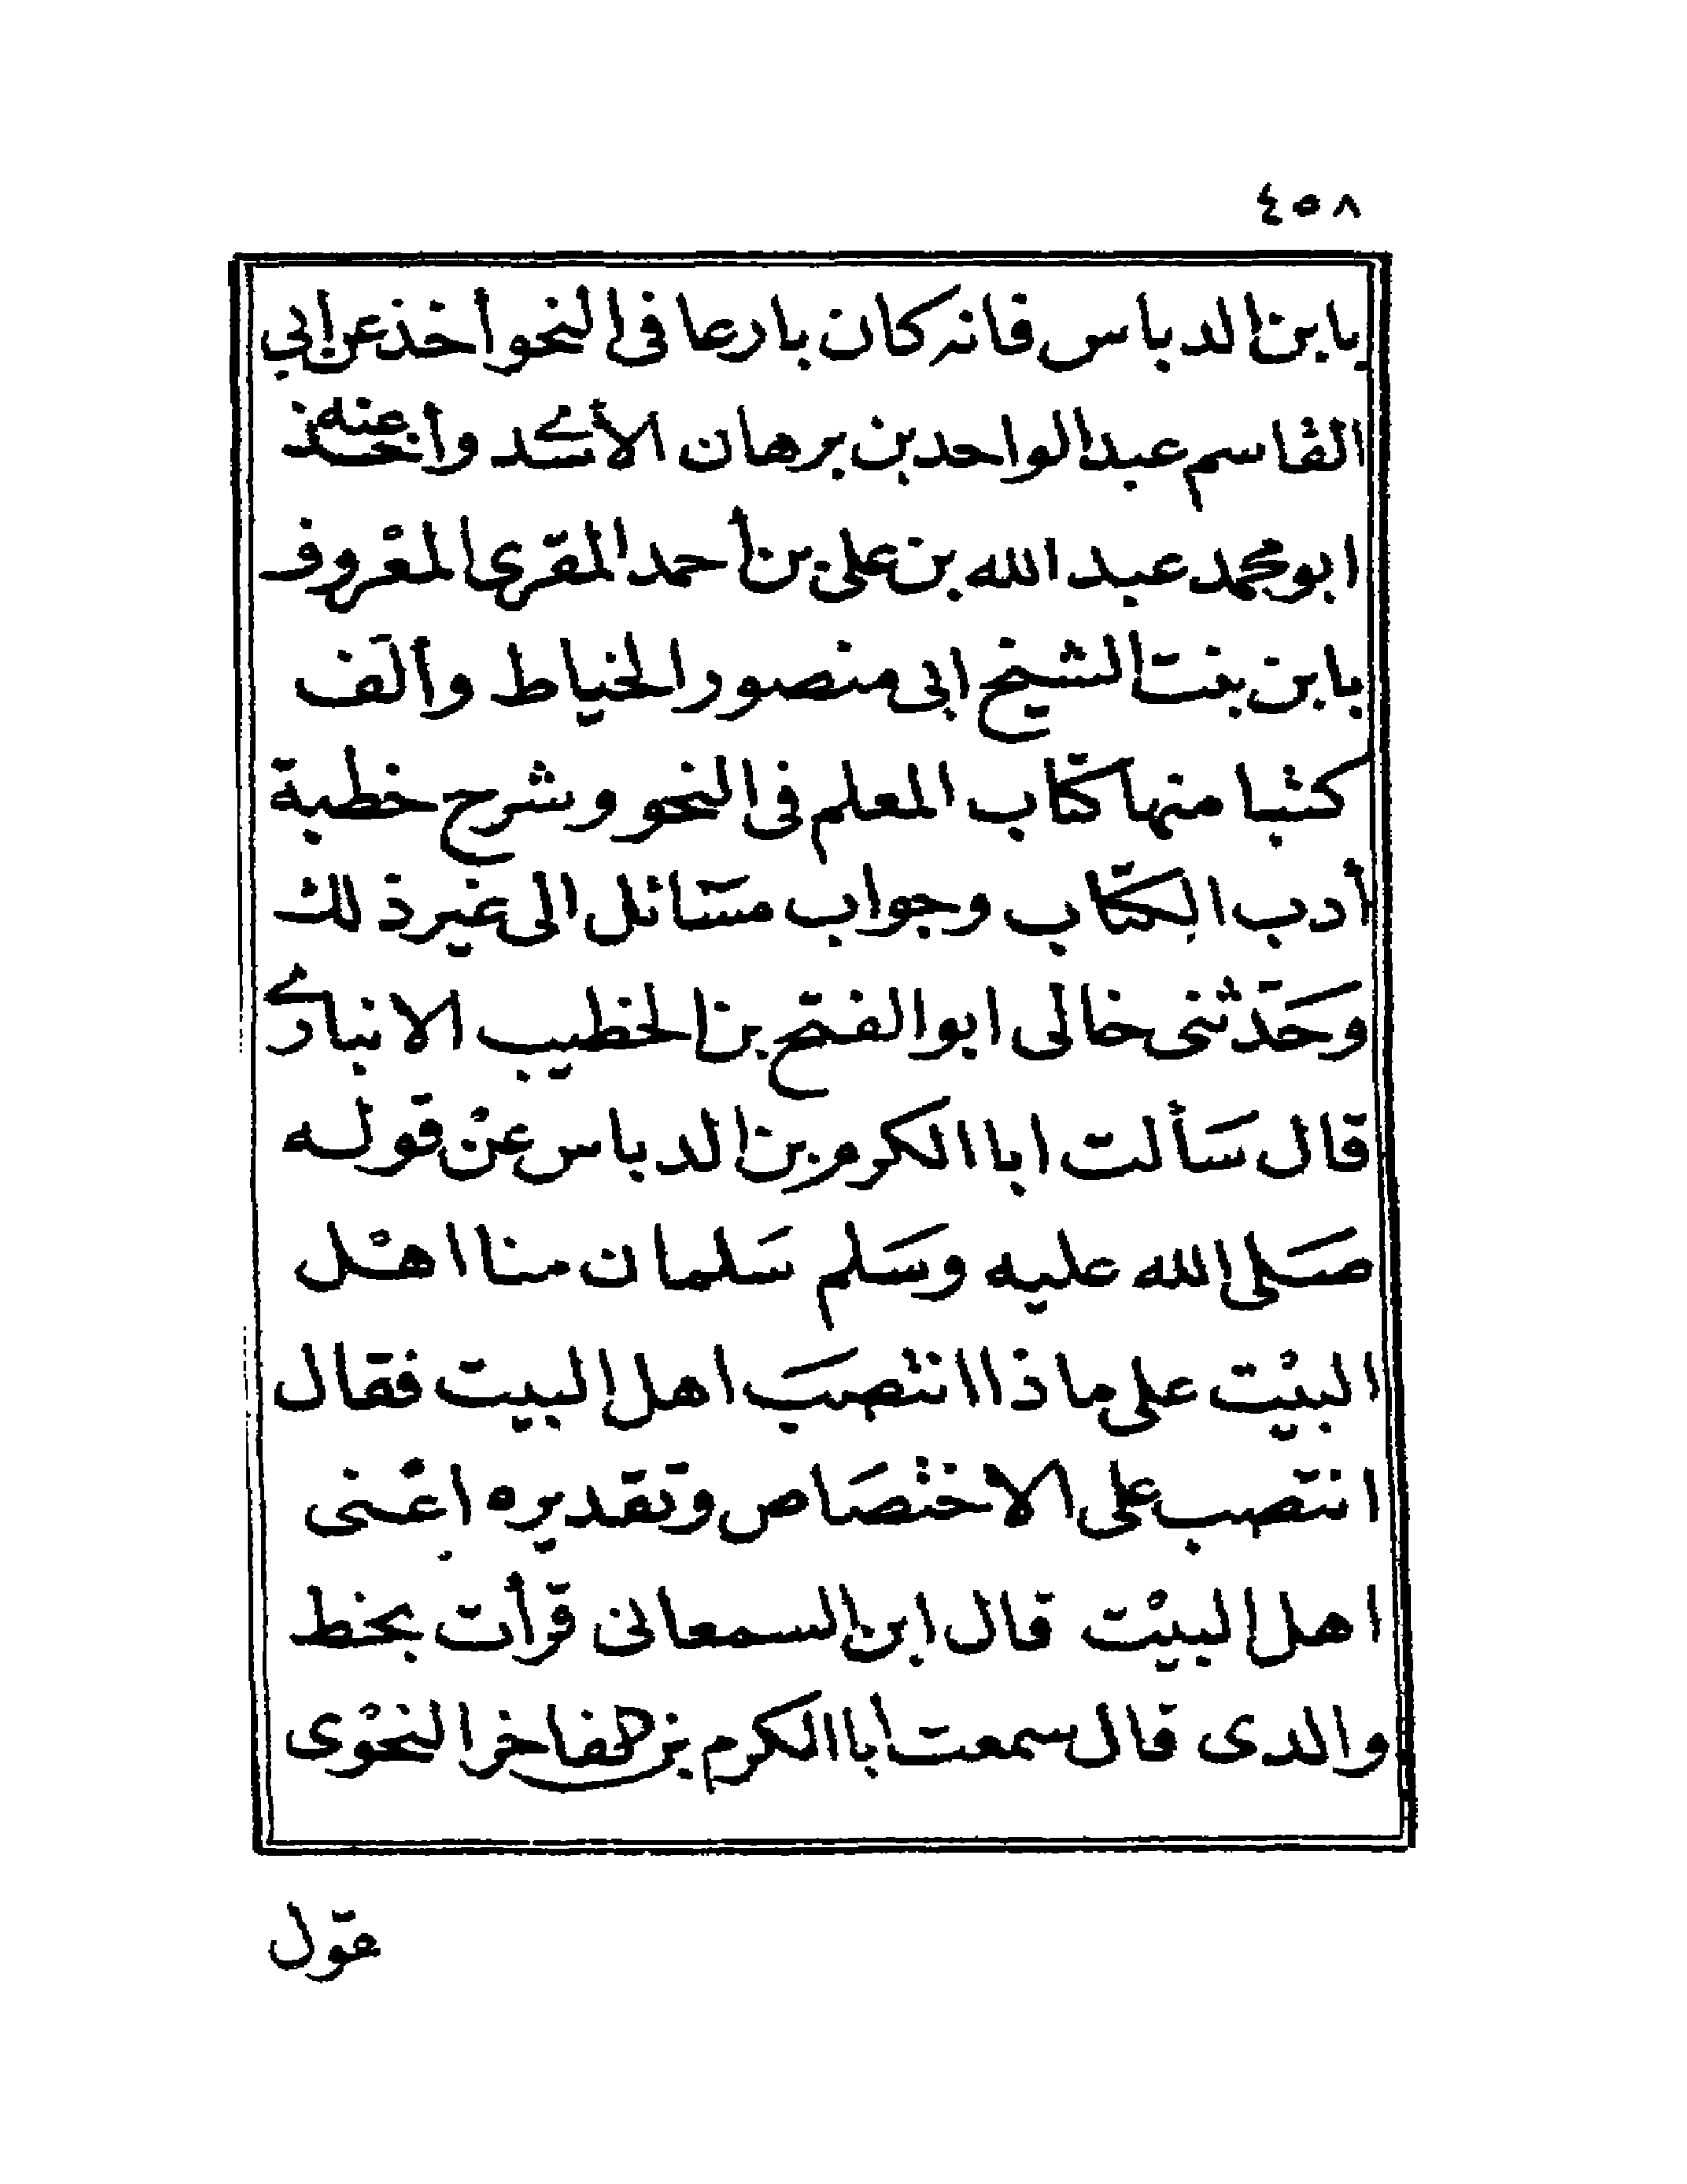 ٤٥٨
بابن الدباس فانه كان بارعا فى النحو أخذ عن ابي
القاسم عبد الواحد بن برهان الأسدى وأخذ عنه
ابو محمد عبد الله بن على بن أحمد المقرى المعْروف
بابن بنت الشيخ ابى منصور الخياط وألف
كتبا منها كتاب المعلم فى النحو وشرح خطبة
أدب الكتاب وجواب مسَائل الى غير ذلك
وحَدثنى خالى ابو الفتح بن الخطيب الانبارى
قال سَألت ابا الكرم بن الدباس عنْ قوله
صَلى الله عليه وسَلم سَلمان منا اهْل
البيْت على ماذا انتصبَ اهل البيت فقال
انتصب على الاختصَاص وتقديره اعْنى
اهل البيْت قال ابن السمعانى قرأت بخط
والدى قال سمعت ابا الكرم بن الفاخر النحوْى
يقول